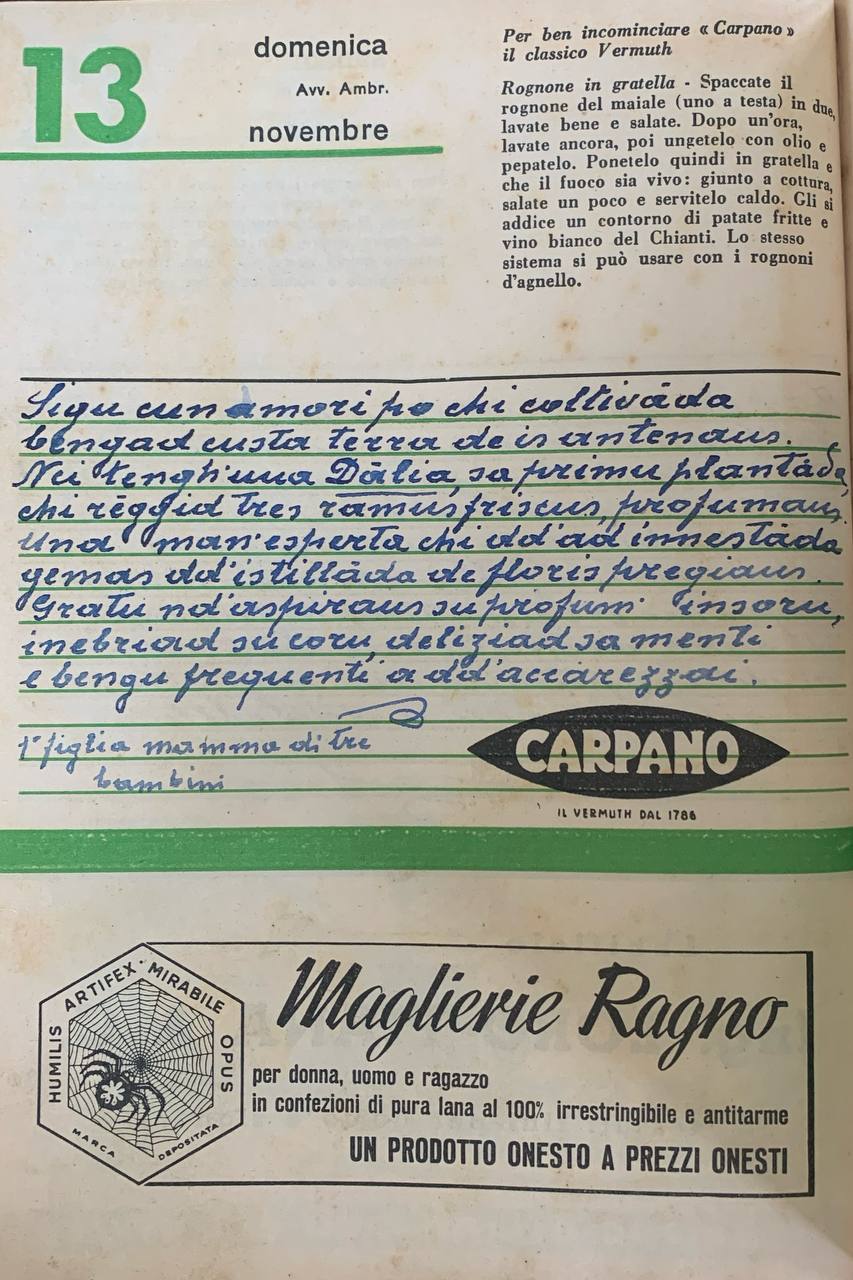 13
domenica
Avv. Ambr.
novembre
Per ben incominciare « Carpano »
il classico Vermuth
Rognone in gratella - Spaccate il
rognone del maiale (uno a testa) in due,
lavate bene e salate. Dopo un'ora,
lavate ancora, poi ungetelo con olio e
pepatelo. Ponetelo quindi in gratella e
che il fuoco sia vivo: giunto a cottura,
salate un poco e servitelo caldo. Gli si
addice un contorno di patate fritte e
vino bianco del Chianti. Lo stesso
sistema si può usare con i rognoni
d'agnello.
Sigu cun amori po chi coltivàda
bengad custa terra de is antenaus.
Nci tengh'una Dàlia, sa primu plantàda,
chi règgid tres ramus friscus, profumaus.
Una man'esperta chi dd'ad innestàda
gemas dd'istillàda de floris pregiaus.
Gratu nd'aspiraus su profum' insoru,
inebriad su coru, deliziad sa menti
e bengu frequenti a dd'accarezzai.
1ª figlia mamma di tre
bambini
CARPANO
IL VERMUTH DAL 1786
HUMILIS ARTIFEX · MIRABILE OPUS
MARCA DEPOSITATA
Maglierie Ragno
per donna, uomo e ragazzo
in confezioni di pura lana al 100% irrestringibile e antitarme
UN PRODOTTO ONESTO A PREZZI ONESTI